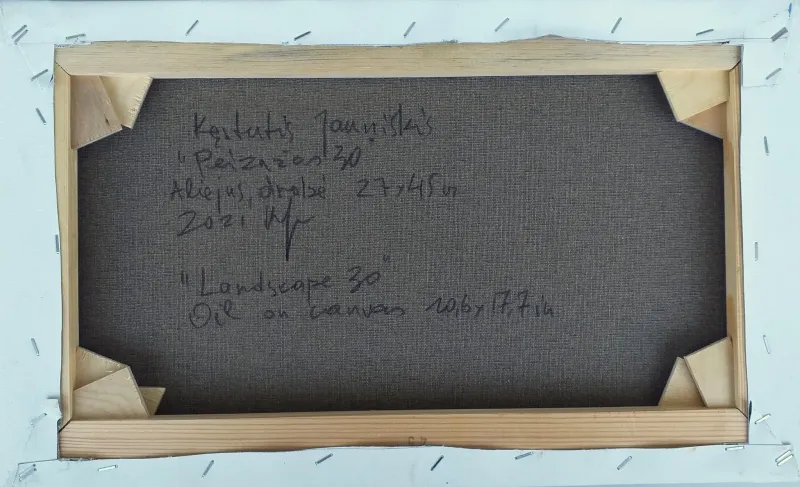 Kęstutis Jauniškis
"Peizažas 30"
Aliejus, drobė 27x45 cm
2021
"Landscape 30"
Oil on canvas 10,6x17,7 in